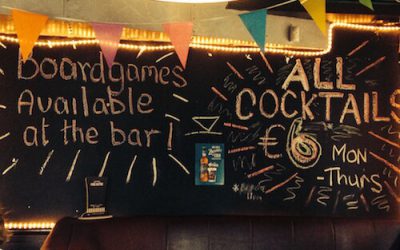 Boardgames
Available
at the bar!
ALL
COCKTAILS
€6 MON
-THURS